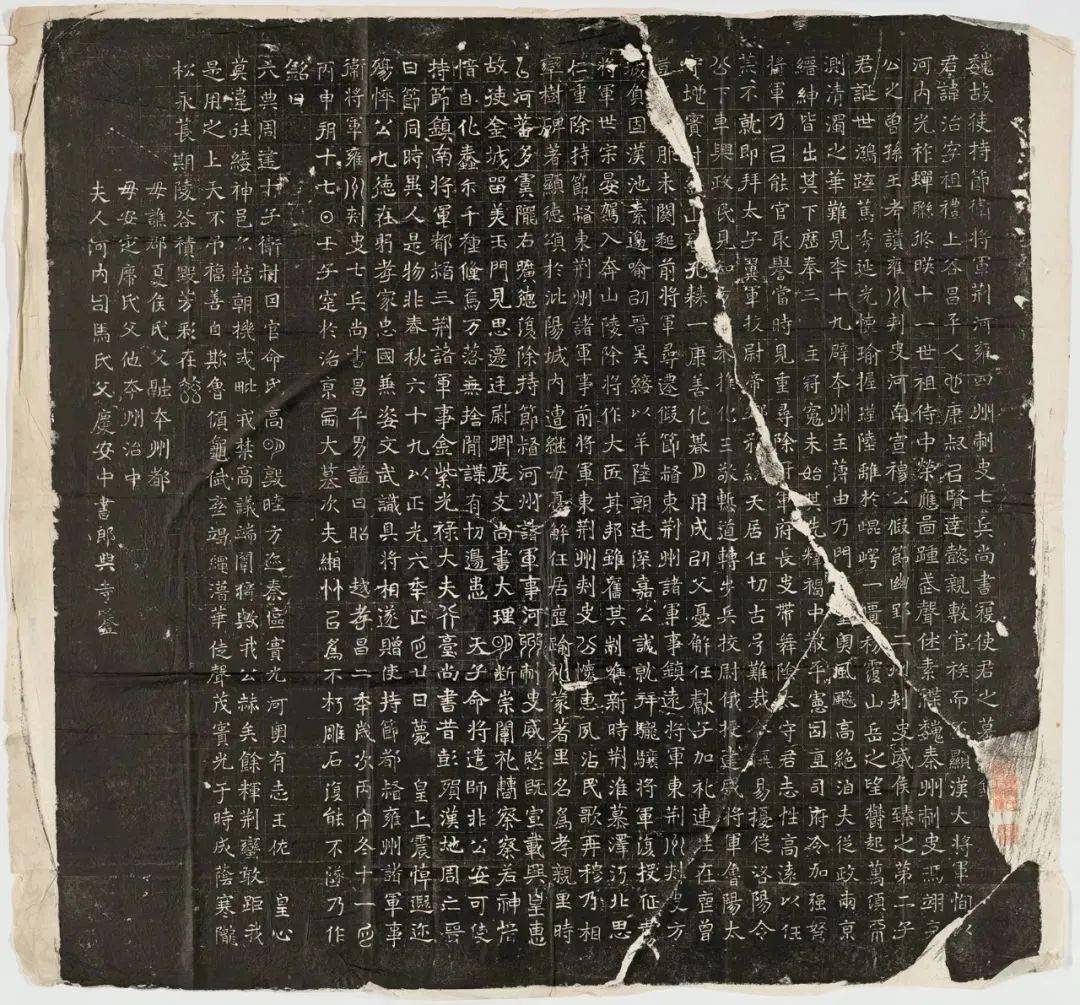 魏故使持節衛將軍荊河雍四州刺史七兵尚書寇使君之墓
君諱治字祖禮上谷昌平人也康叔以賢達懿親敷官族而顯漢大將軍恂以
河內光祚蟬聯十一世祖侍中榮應啚踵武聲魏秦州刺史馮翊
公之曾孫王考讚雍州刺史河南宣穆公假節幽郢二州刺史威侯臻之第二子
君誕世鴻睦篤秀延光懷瑜握瑾陸離於崐崿一票初霞山岳之望鬱起萬頃而
測清濁之華難見年十九辟本州主薄由乃門奧風飈高絕泊夫從政兩京
縉紳皆出其下歷奉三主冠冤未始其釋褐中散平憲囙直司府令加強弩
將軍乃以能官取譽當時見重尋除軍府長史帶舞陰太守君志性高遠以任
美不就即拜太子翼軍校尉帝天居任切古弓難裁易擾從洛陽令
公下車興政民見知推化三敬暫道轉步兵校尉俄授建威將軍魯陽太
守地實山蠻一康善化朞月用成以父憂解任獻子加礼連在塱曾
服未闋起前將軍尋還假節督東荊州諸軍事鎮遠將軍東荊州刾史方
城負固漢池素邊喻以晉吳綏以羊陸朝廷深嘉公誠就拜驪驤將軍復授征虜
將軍世宗晏駕入奔山陵除將作大匠其邦雖舊其制惟新時荊淮慕澤沔北思
仁重除持節督東荊州諸軍事前將軍東荊州刾史公懷惠夙沾民歌再穆乃相
率樹碑著顯德頌於沘陽城內遭繼母憂解任居塱踰礼蒙著里名為孝親里時
河蕃多虞隴右復除持節督河州諸軍事河州刾史威愍既宣載興皇惠
故使金城留美玉門見思還廷尉卿度支尚書大理明斷崇闡礼
昏自化蠢尒千種萬落無捨閒諜有切邊患天子命將遣師非公安可使
持節鎮南將軍都督三荊諸軍事金紫光祿大夫行臺尚書昔彭殞漢地周亡晉
日節同時異人是物非春秋六十九以正光六年正月日薨皇上震悼遐迩
殤悴公九德在躬孝家忠國兼姿文武識具將相遂贈使持節都督雍州諸軍事
衛將軍雍州刾史七兵尚書昌平男謚曰昭越孝昌二年歲次丙午冬十一月
丙申朔十七日壬子窆於治京西大墓次夫緗竹以為不朽雕石復能不落乃作
銘曰
六典周建十子衛樹囙官命氏高明睦方迩秦區實允河奧有志王佐皇心
莫違往綏神邑允轄朝機或毗我禁高議端闈將毀我公赫矣餘輝荊蠻敢距我
是用之上天不弔福善自欺魯傾龜武華徒聲茂實光于時成蔭寒隴
松永萇期陵谷積毀芳在
母譙郡夏侯氏父融本州都
母安定席氏父他本州治中
夫人河內司馬氏父慶安中書郎興寺